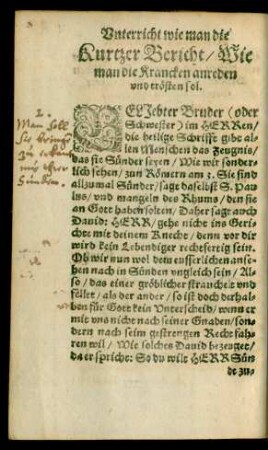 Vnterricht wie man die
Kurtzer Bericht / Wie
man die Krancken anreden
vnd trösten sol.
1.
Man soll
sie
zu
ihrer
Sünden.
GELiebter Bruder (oder
Schwester) im HERRen /
die heilige Schrifft gibt al-
len Menschen das Zeugnis /
das sie Sünder seyen / Wie wir sonder-
lich sehen / zun Römern am 3. Sie sind
allzumal Sünder / sagt daselbst S. Pau-
lus / vnd mangeln des Rhums / den sie
an Gott haben solten / Daher sagt auch
Dauid: HERR / gehe nicht ins Geri-
chte mit deinem Knecht / denn vor dir
wird kein Lebendiger rechtfertig sein.
Ob wir nun wol dem eusserlichen anse-
hen nach in Sünden vngleich sein / Al-
so / das einer gröblicher strauchelt vnd
fellet / als der ander / so ist doch derhal-
ben für Gott kein Vnterscheid / wenn er
mit vns nicht nach seiner Gnaden / son-
dern nach seim gestrengen Recht fah-
ren wil / Wie solches Dauid bezeuget /
da er spricht: So du wilt HERR Sün-
de zu-